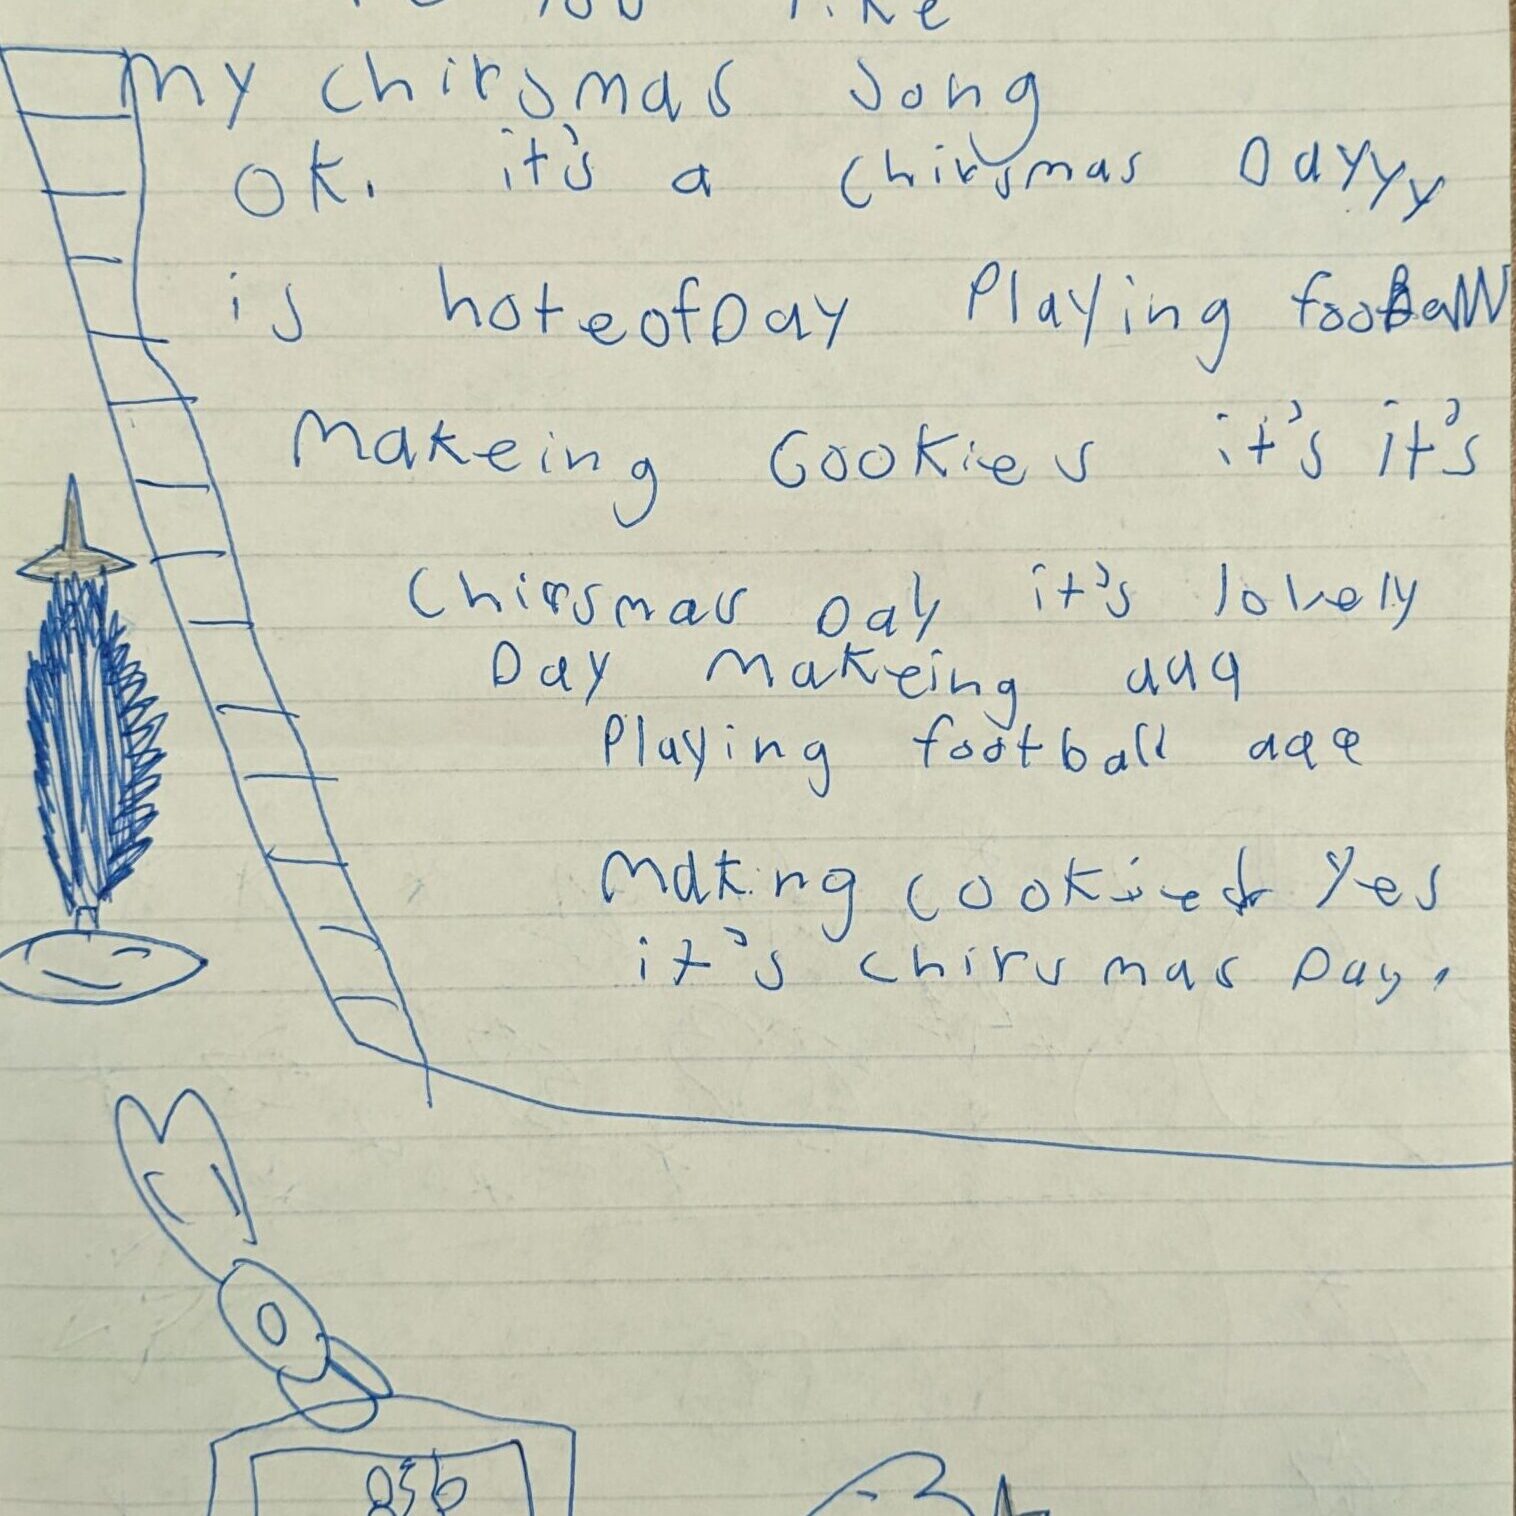 You like
my chirsmas song
OK. it's a chirsmas Dayyy
is hoteofDay Playing football
Makeing Cookies it's it's
Chirsmas Day it's lovely
Day makeing aaa
Playing football aaa
making cookies Yes
it's chirsmas Day.